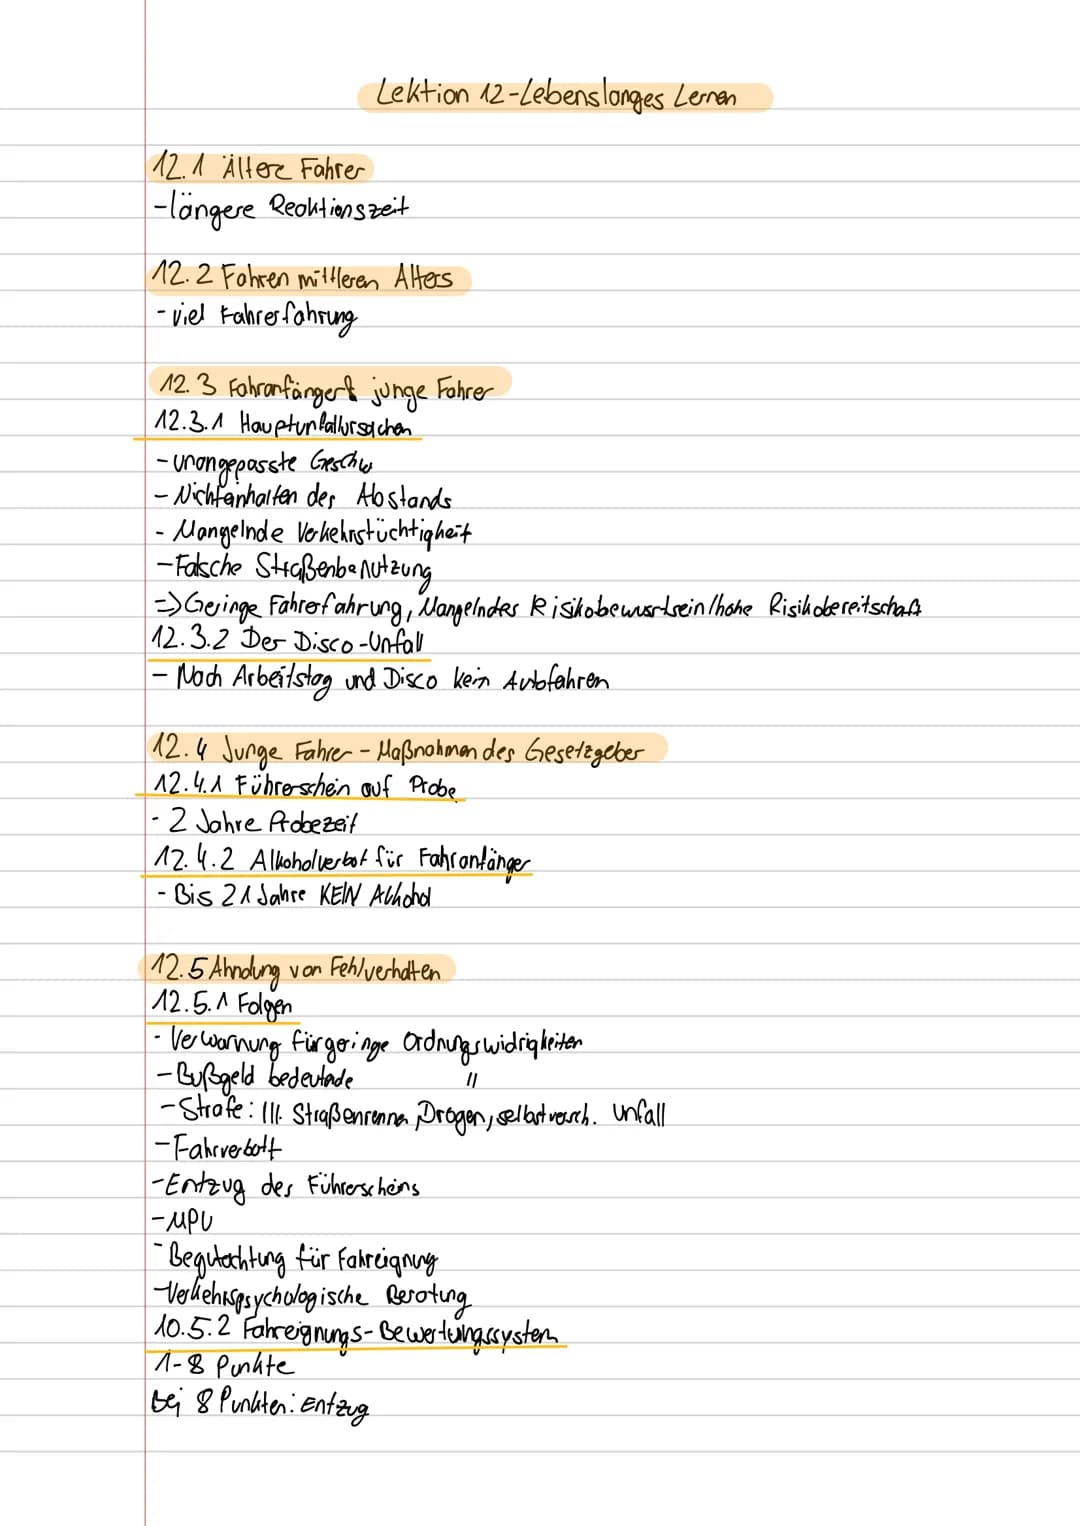 Lektion 12-Lebenslanges Lernen
12.1 Ältere Fahrer
-längere Reaktionszeit
12.2 Fahren mittleren Alters
- viel Fahrerfahrung
12.3 Fahranfänger & junge Fahrer
12.3.1 Hauptunfallursachen
- unangepasste Geschw
- Nichteinhalten des Abstands
- Mangelnde Verkehrstüchtigkeit
- Falsche Straßenbenutzung
=> Geringe Fahrerfahrung, Mangelndes Risikobewusstsein/hohe Risikobereitschaft
12.3.2 Der Disco-Unfall
- Nach Arbeitstag und Disco kein Autofahren
12.4 Junge Fahrer - Maßnahmen des Gesetzgeber
12.4.1 Führerschein auf Probe
- 2 Jahre Probezeit
12.4.2 Alkoholverbot für Fahranfänger
- Bis 21 Jahre KEIN Alkohol
12.5 Ahndung von Fehlverhalten
12.5.1 Folgen
- Verwarnung für geringe Ordnungswidrigkeiten
- Bußgeld bedeutade "
- Strafe: Ill. Straßenrennen, Drogen, selbstversch. Unfall
- Fahrverbott
- Entzug des Führerscheins
- MPU
- Begutachtung für Fahreignung
- Verkehrspsychologische Beratung
10.5.2 Fahreignungs-Bewertungssystem
1-8 Punkte
bei 8 Punkten: Entzug